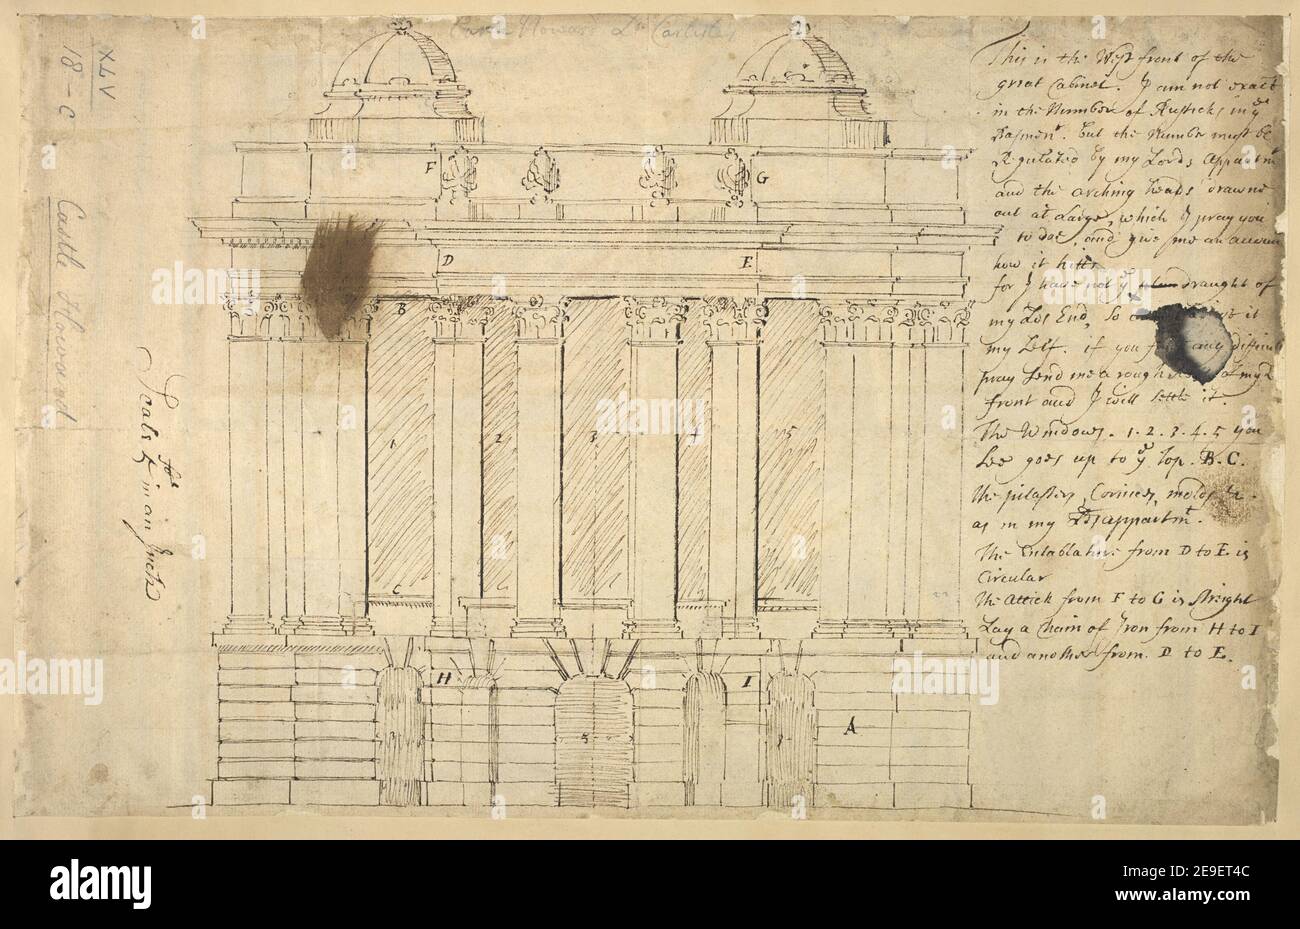 Castle Howard Ld Carlisle's
XLV
18-C
Castle Howard
Scale 4 fot in an Inch
This is the West front of the
great Cabinet. I am not exact
in the Number of Rusticks in ye
Basment. but the Number must be
Regulated by my Lords Appartmt
and the arching heads drawne
out at Large, which I pray you
to doe, and give me an account
how it hitts
for I have not ye draught of
my Lds End, So it
my Self. if you any difficulty
pray Send me a rough of myd
front and I will settle it.
The Windows. 1. 2. 3. 4. 5 you
See goes up to ye Top. B. C.
The pilasters, Cornices, molds &c.
as in my Lds appartmt.
The Entablature from D to E is
Circular
The Attick from F to G is streight
Lay a Chain of Iron from H to I
and another from D to E.
F
G
D
E
B
1
2
3
4
5
C
H
I
A
5
alamy
Image ID: 2E9EFT4C
www.alamy.com